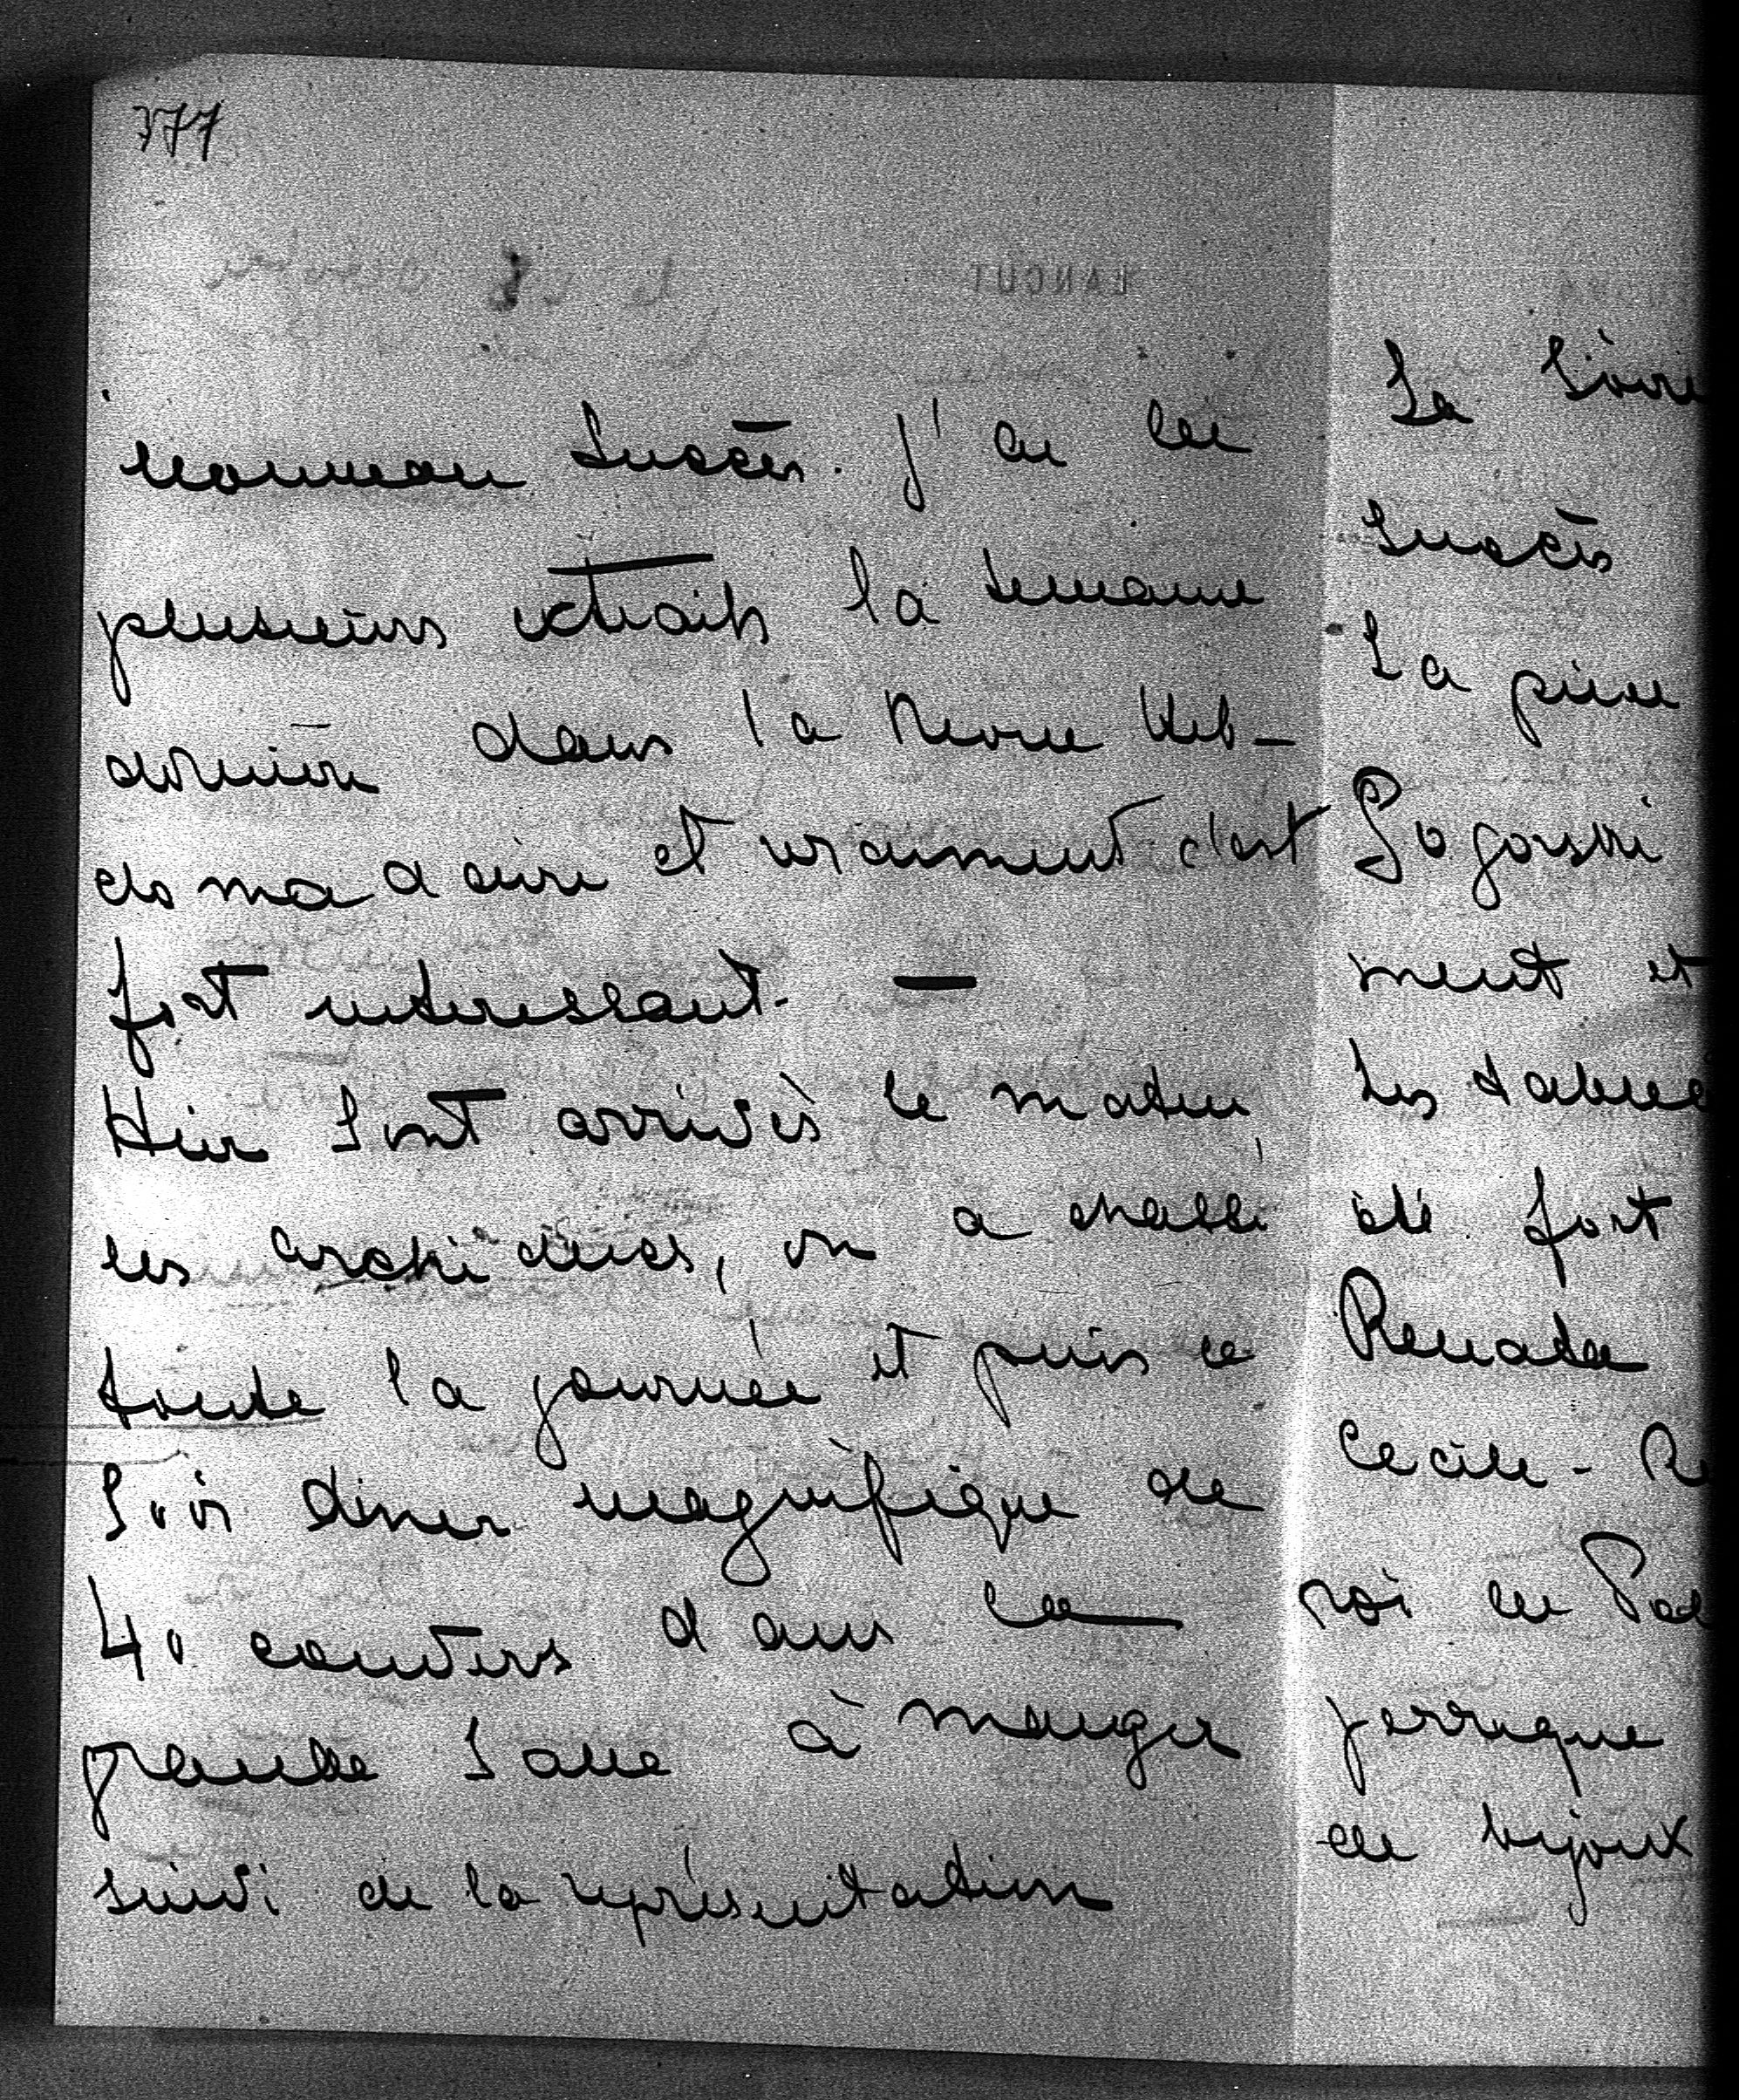 377
LANCUT
nouveau succès. J'ai lu
plusieurs extraits la semaine
dernière dans la Revue Heb-
domadaire et vraiment c'est
fort interessant. —
Hier sont arrivés le matin,
les archiducs, on a chassé
toute la journée et puis le
soir diner magnifique de
40 couverts dans la
grande salle à manger
suivi de la représentation
La soiré
succès
La pièce
Gogorski
ment et
Les table
été fort
Renata
Cecile - Re
roi de Pol
perruque
de bijoux